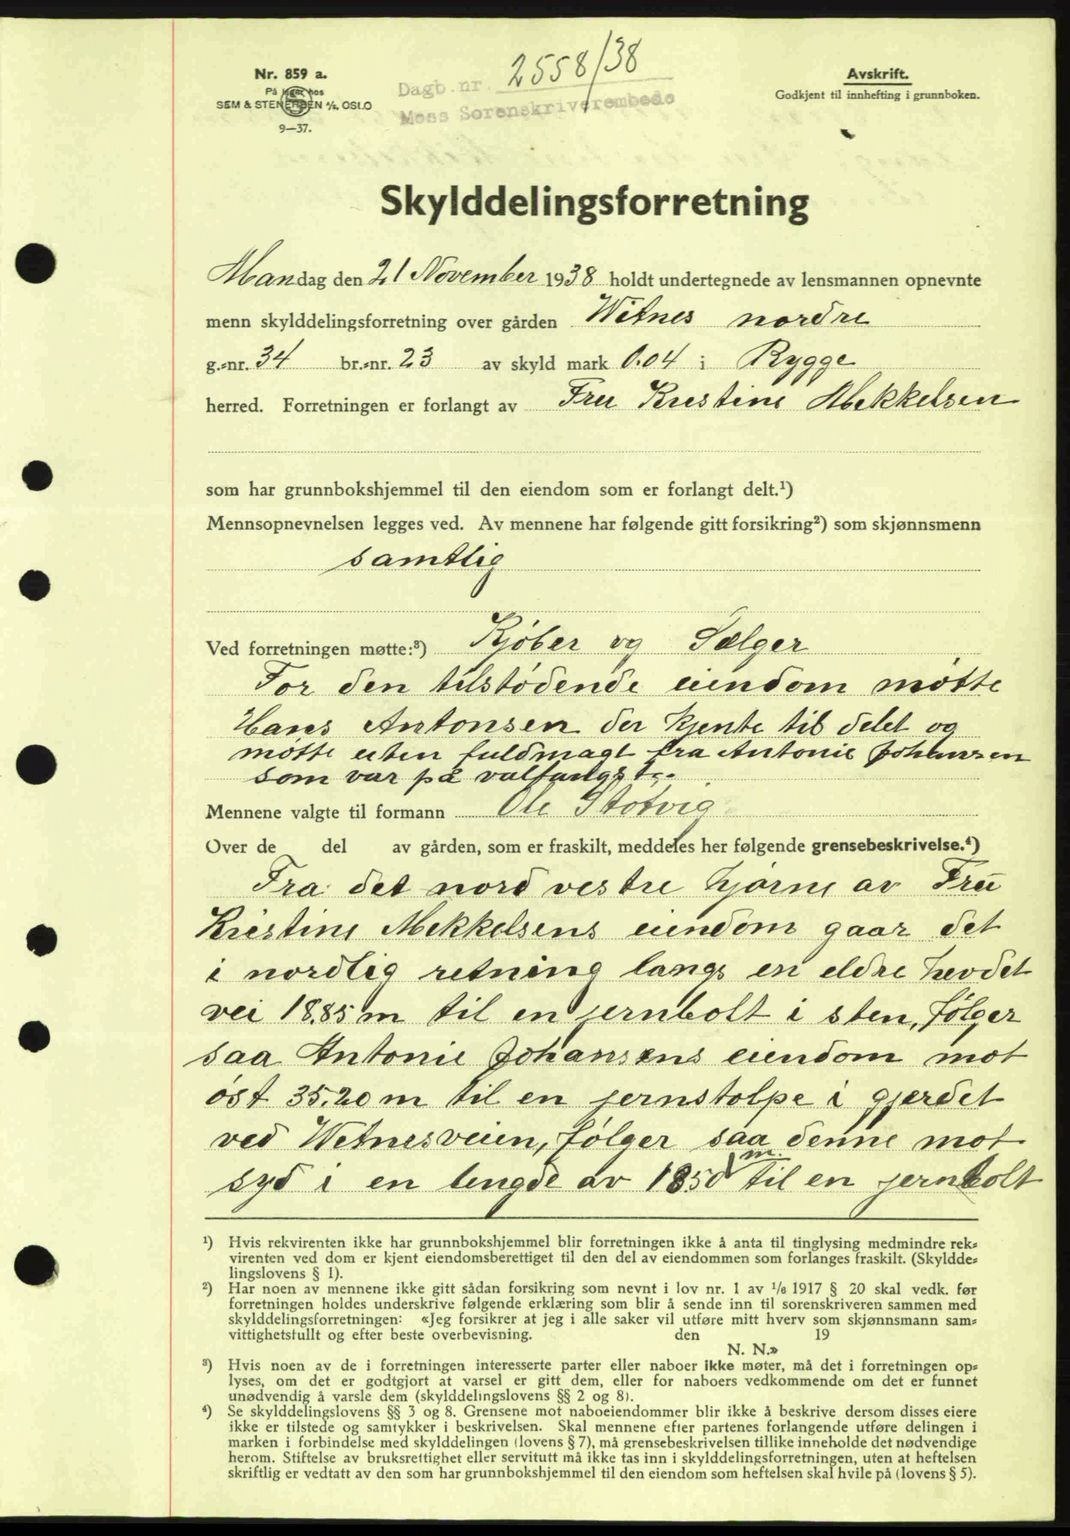 Nr. 859 a.
På lager hos
SEM & STENERSEN A/S, OSLO
9—37.
Dagb. nr. 2558/38
Moss Sorenskriverembede
Avskrift.
Godkjent til innhefting i grunnboken.
Skylddelingsforretning
Mandag den 21 November 1938 holdt undertegnede av lensmannen opnevnte
menn skylddelingsforretning over gården Wetnes nordre
g.-nr. 34 br.-nr. 23 av skyld mark 0.04 i Rygge
herred. Forretningen er forlangt av Fru Kristine Mekkelsen
som har grunnbokshjemmel til den eiendom som er forlangt delt.¹)
Mennsopnevnelsen legges ved. Av mennene har følgende gitt forsikring²) som skjønnsmenn
samtlig
Ved forretningen møtte:³) Kjøber og Sælger
For den tilstødende eiendom møtte
Hans Antonsen der kjente til delet og
møtte uten fuldmagt fra Antonie Johansen
som var på valfangst.
Mennene valgte til formann Ole Støtvig
Over de del av gården, som er fraskilt, meddeles her følgende grensebeskrivelse.⁴)
Fra det nord vestre hjørne av Fru
Kristine Mekkelsens eiendom gaar det
i nordlig retning langs en eldre hevdet
vei 18.85 m til en jernbolt i sten, følger
saa Antonie Johansens eiendom mot
øst 35.20 m til en jernstolpe i gjerdet
ved Wetnesveien, følger saa denne mot
syd i en lengde av 1850 m. til en jernbolt
¹) Hvis rekvirenten ikke har grunnbokshjemmel blir forretningen ikke å anta til tinglysing medmindre rek-
virenten ved dom er kjent eiendomsberettiget til den del av eiendommen som forlanges fraskilt. (Skyldde-
lingslovens § 1).
²) Har noen av mennene ikke gitt sådan forsikring som nevnt i lov nr. 1 av 1/6 1917 § 20 skal vedk. før
forretningen holdes underskrive følgende erklæring som blir å sende inn til sorenskriveren sammen med
skylddelingsforretningen: «Jeg forsikrer at jeg i alle saker vil utføre mitt hverv som skjønnsmann sam-
vittighetsfullt og efter beste overbevisning. den 19
N. N.»
³) Hvis noen av de i forretningen interesserte parter eller naboer ikke møter, må det i forretningen op-
lyses, om det er godtgjort at varsel er gitt dem, eller for naboers vedkommende om det er funnet
unødvendig å varsle dem (skylddelingslovens §§ 2 og 8).
⁴) Se skylddelingslovens §§ 3 og 8. Grensene mot naboeiendommer blir ikke å beskrive dersom disses eiere
ikke er tilstede og samtykker i beskrivelsen. Skal mennene efter partenes forlangende utføre delingen i
marken i forbindelse med skylddelingen (lovens § 7), må grensebeskrivelsen tillike inneholde det nødvendige
herom. Stiftelse av bruksrettighet eller servitutt må ikke tas inn i skylddelingsforretningen, uten at heftelsen
skriftlig er vedtatt av den som har grunnbokshjemmel til den eiendom som heftelsen skal hvile på (lovens § 5).